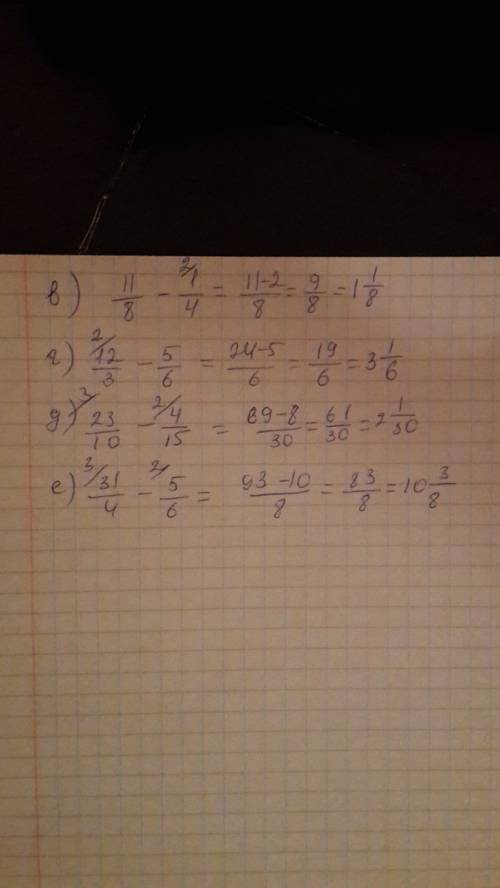 в) 11/8 - ²/1/4 = 11-2/8 = 9/8 = 1 1/8
г) ²/12/3 - 5/6 = 24-5/6 = 19/6 = 3 1/6
д) ³/23/10 - ²/4/15 = 69-8/30 = 61/30 = 2 1/30
е) ³/31/4 - ²/5/6 = 93-10/8 = 83/8 = 10 3/8